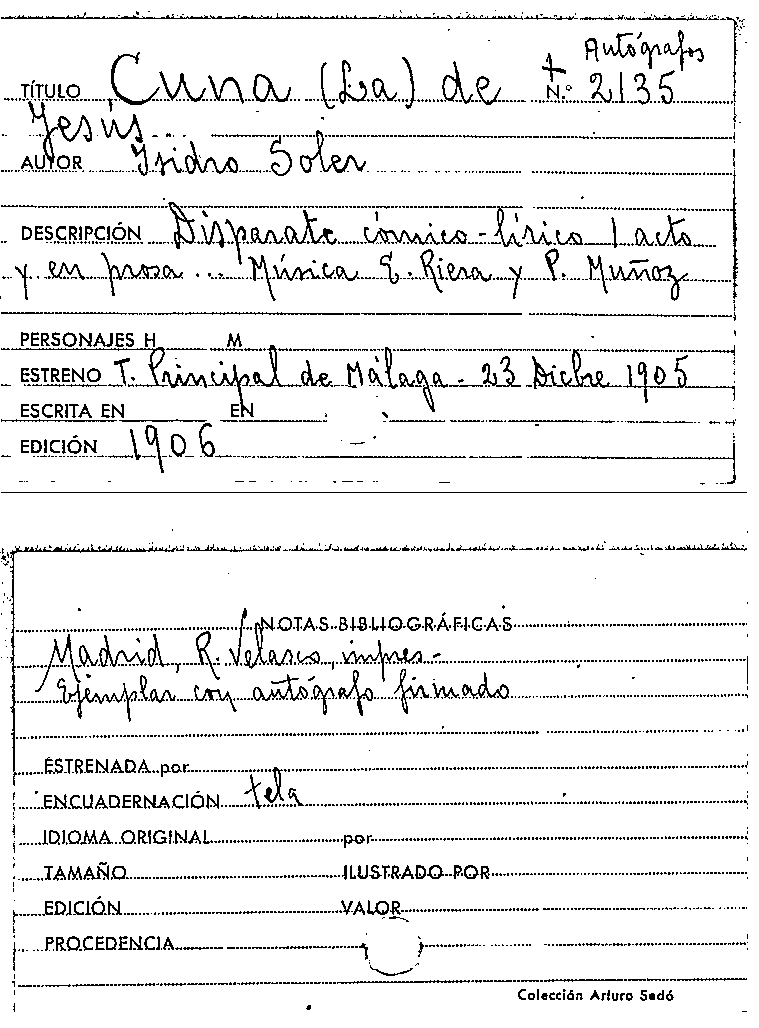 Autógrafos
TÍTULO Cuna (La) de N.º 2135
Jesús...
AUTOR Isidro Soler
DESCRIPCIÓN Disparate cómico-lírico 1 acto
y en prosa... Música E. Riera y P. Muñoz
PERSONAJES H M
ESTRENO T. Principal de Málaga - 23 Dicbre 1905
ESCRITA EN EN
EDICIÓN 1906
NOTAS BIBLIOGRÁFICAS
Madrid, R. Velasco, impres-
Ejemplar con autógrafo firmado
ESTRENADA por
ENCUADERNACIÓN tela
IDIOMA ORIGINAL por
TAMAÑO ILUSTRADO POR
EDICIÓN VALOR
PROCEDENCIA
Colección Arturo Sedó